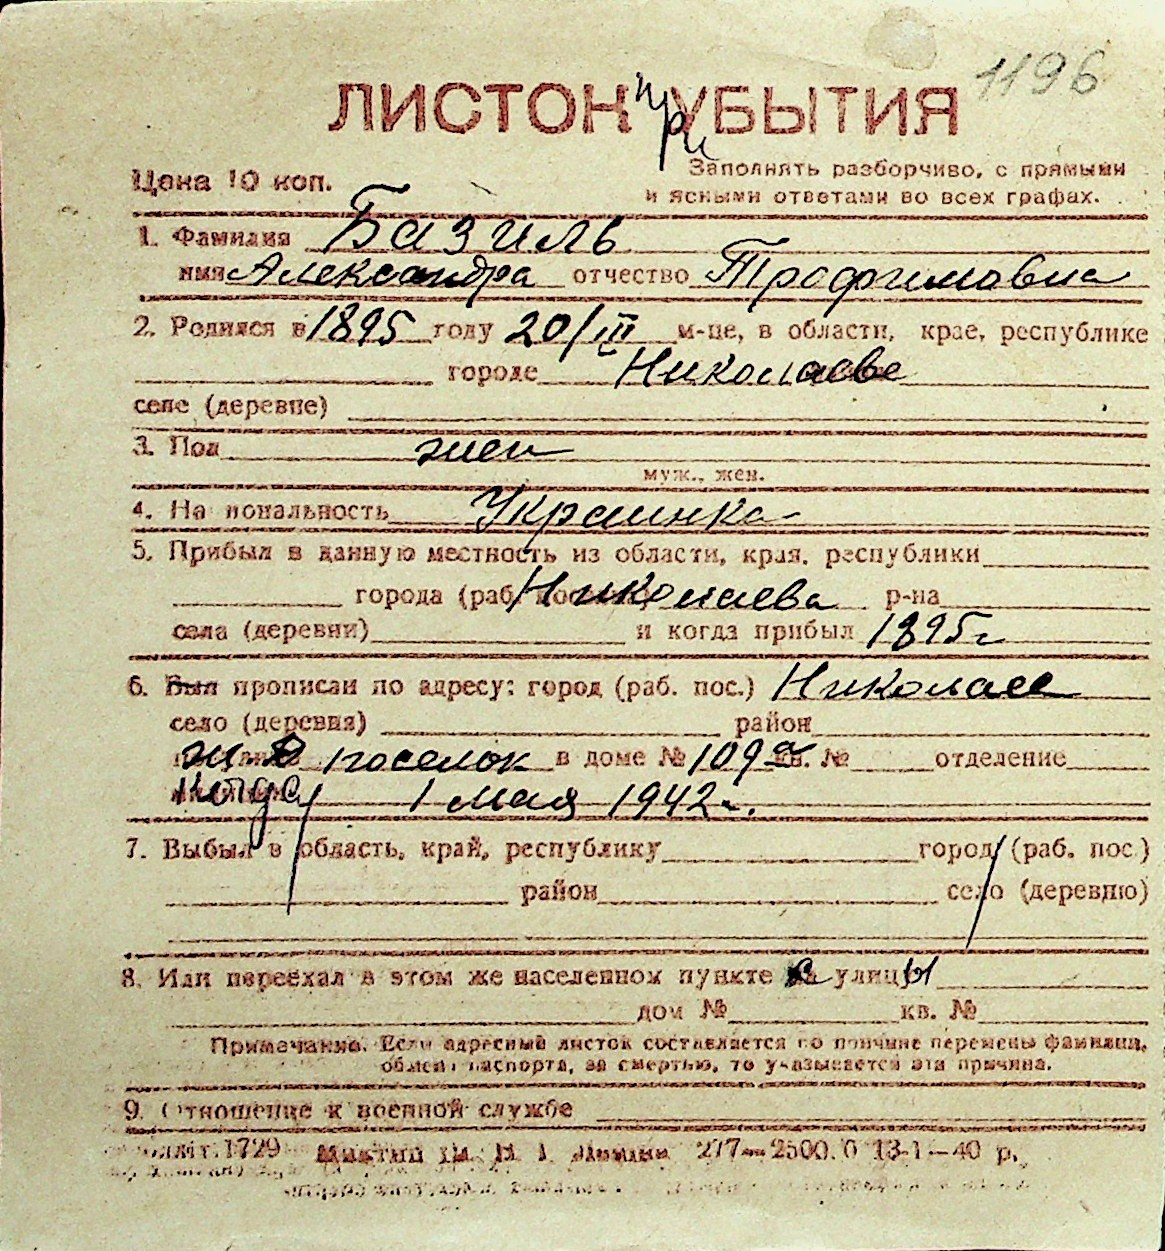 1196
ЛИСТОК при УБЫТИЯ
Цена 10 коп.
Заполнять разборчиво, с прямыми
и ясными ответами во всех графах.
1. Фамилия Базиль
имя Александра отчество Трофимовна
2. Родился в 1895 году 20/III м-це, в области, крае, республике
городе Николаеве
селе (деревне)
3. Пол жен
муж., жен.
4. Национальность Украинка
5. Прибыл в данную местность из области, края, республики
города (раб. Николаева р-на
села (деревни) и когда прибыл 1895 г
6. Был прописан по адресу: город (раб. пос.) Николаев
село (деревня) район
поселок в доме № 109 а кв. № отделение
Когда 1 мая 1942 г.
7. Выбыл в область, край, республику город (раб. пос.)
район село (деревню)
8. Или переехал в этом же населенном пункте с улицы
дом № кв. №
Примечание. Если адресный листок составляется по причине перемены фамилии,
обмена паспорта, за смертью, то указывается эта причина.
9. Отношение к военной службе
1729 277—2500. 13-1—40 р.